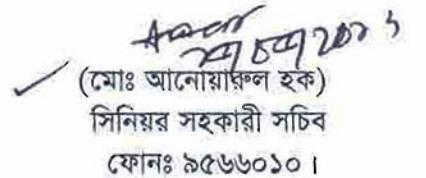 (মোঃ আনোয়ারুল হক)
সিনিয়র সহকারী সচিব
ফোনঃ ৯৫৬৬০১০।